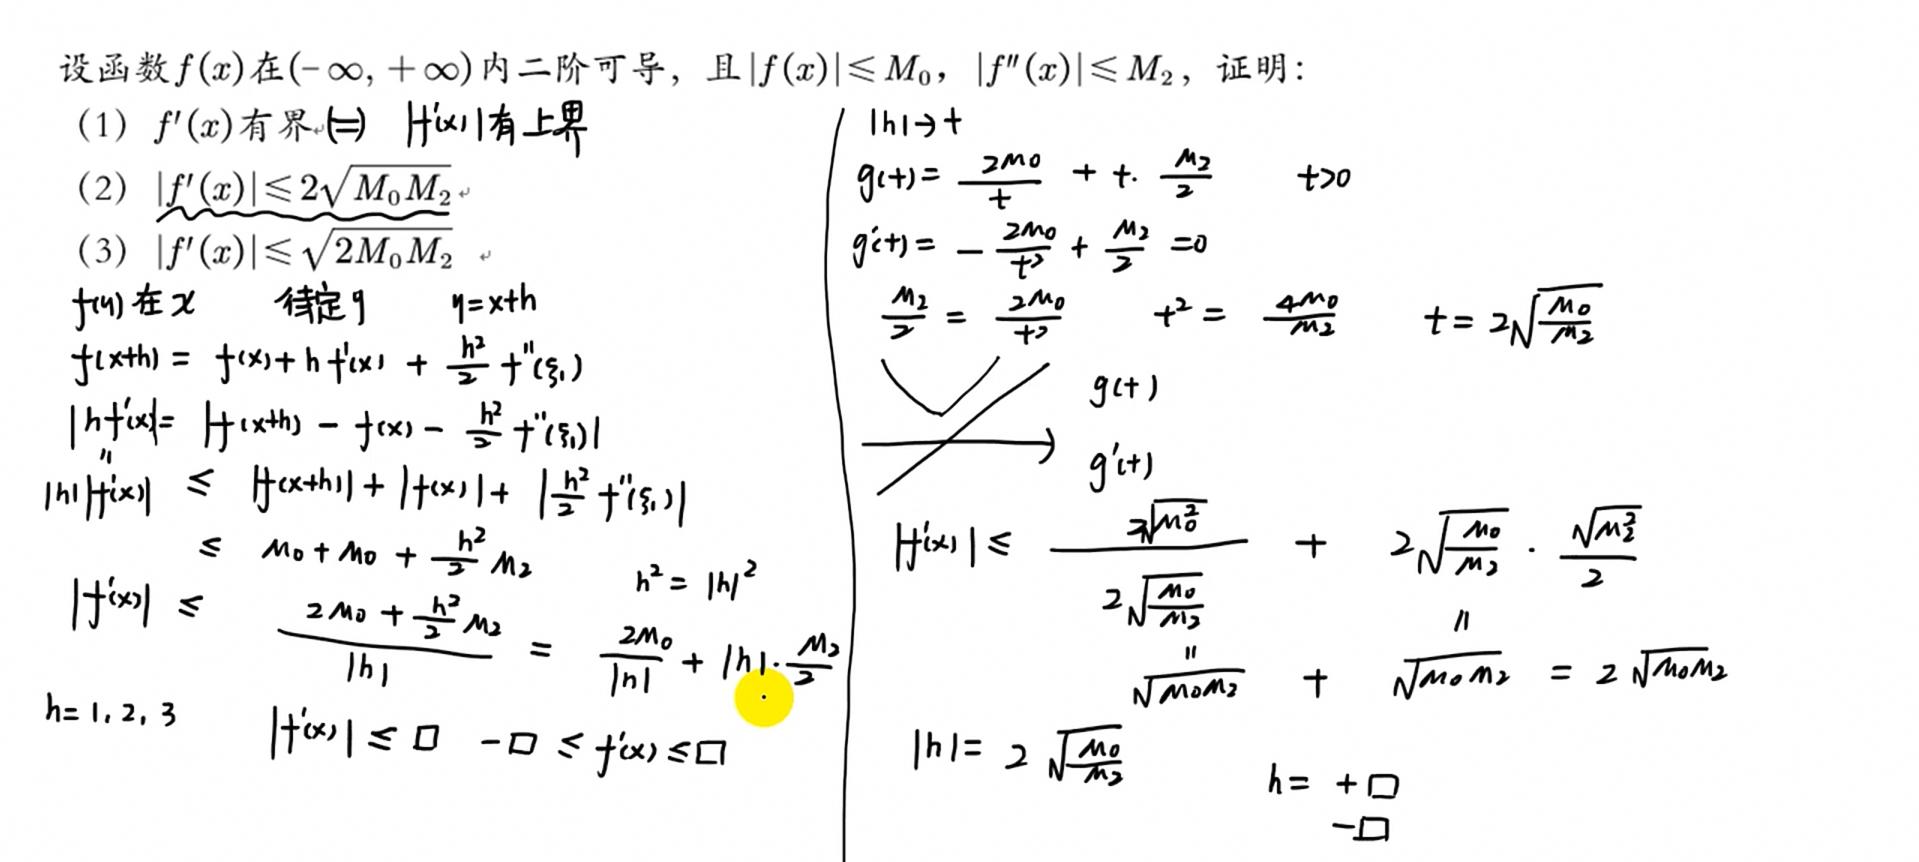 设函数f(x)在(-∞, +∞)内二阶可导，且|f(x)|≤M₀，|f″(x)|≤M₂，证明：
(1) f′(x)有界 (=) |f′(x)|有上界
(2) |f′(x)|≤2√(M₀M₂)
(3) |f′(x)|≤√(2M₀M₂)
f(y)在x 待定y y=x+h
f(x+h) = f(x)+h f′(x) + h²/2 f″(ξ₁)
|hf′(x)|= |f(x+h) - f(x) - h²/2 f″(ξ₁)|
=
|h||f′(x)| ≤ |f(x+h)| + |f(x)| + |h²/2 f″(ξ₁)|
≤ M₀+M₀ + h²/2 M₂
h² = |h|²
|f′(x)| ≤ (2M₀ + h²/2 M₂)/|h| = 2M₀/|h| + |h|·M₂/2
h=1,2,3
|f′(x)| ≤ □ -□ ≤ f′(x) ≤ □
|h|→t
g(t)= 2M₀/t + t·M₂/2 t>0
g′(t)= - 2M₀/t² + M₂/2 =0
M₂/2 = 2M₀/t² t² = 4M₀/M₂ t= 2√(M₀/M₂)
g(t)
g′(t)
|f′(x)| ≤ 2√(M₀²)/(2√(M₀/M₂)) + 2√(M₀/M₂) · √(M₂²)/2
= =
√(M₀M₂) + √(M₀M₂) = 2√(M₀M₂)
|h|= 2√(M₀/M₂)
h= +□
-□